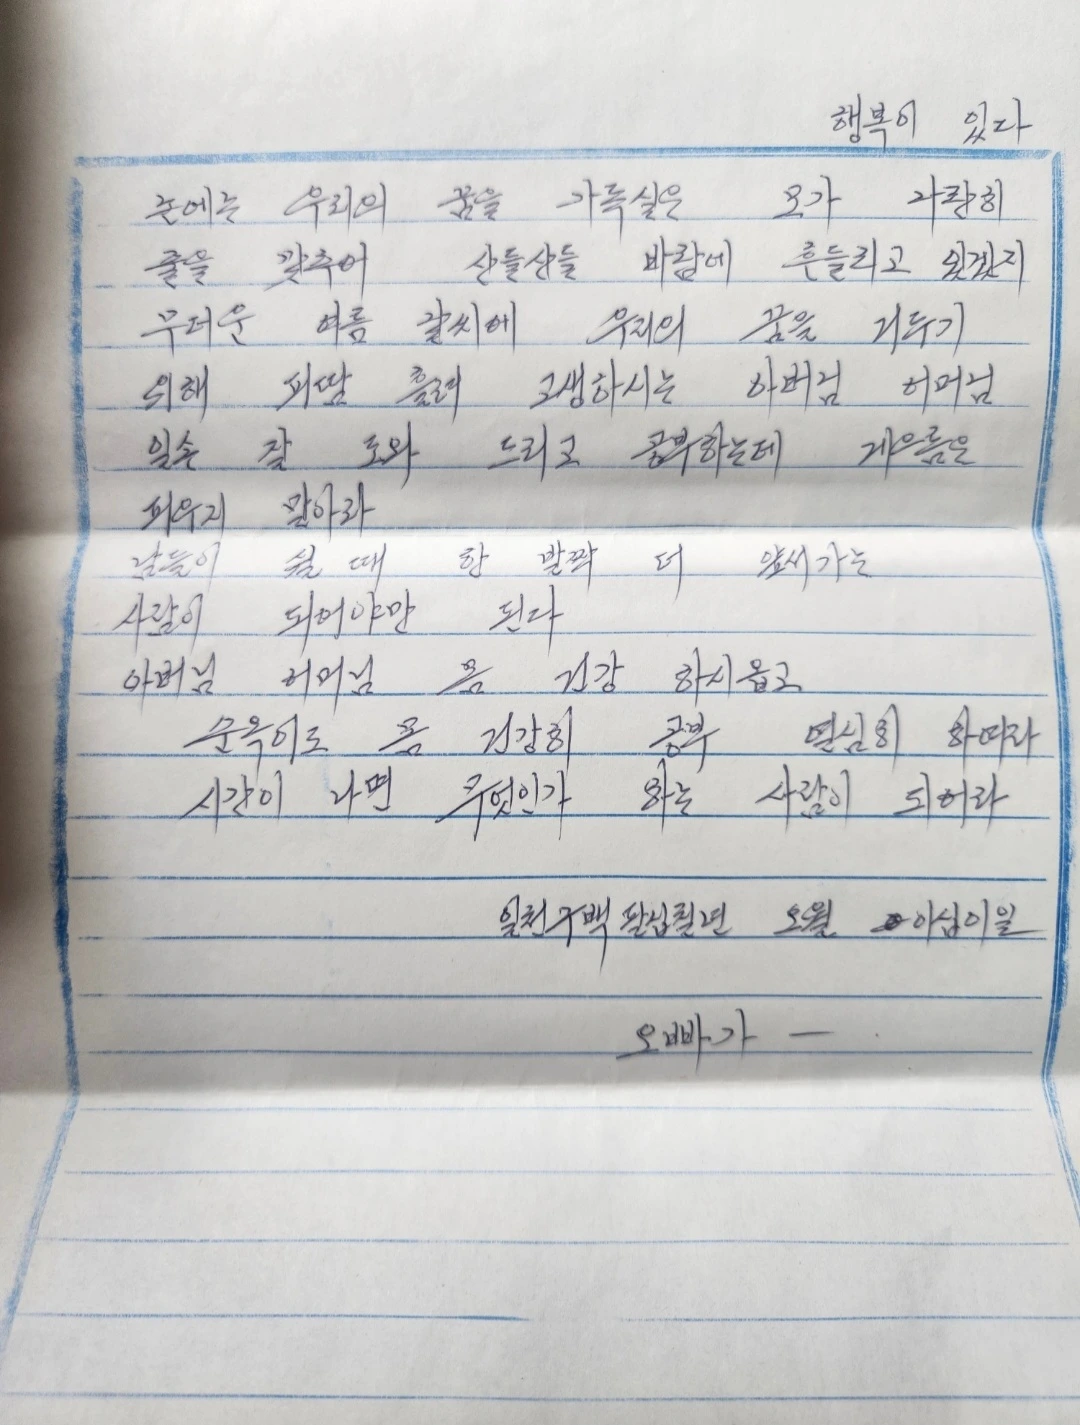 행복이 있다
논에는 우리의 꿈을 가득실은 모가 나란히
줄을 맞추어 산들산들 바람에 흔들리고 있겠지
무더운 여름 날씨에 우리의 꿈을 거두기
위해 피땀 흘려 고생하시는 아버님 어머님
일손 잘 도와 드리고 공부하는데 게으름은
피우지 말아라
남들이 쉴 때 한 발짝 더 앞서가는
사람이 되어야만 된다
아버님 어머님 몸 건강 하시옵고
순옥이도 몸 건강히 공부 열심히 하여라
시간이 나면 무엇인가 하는 사람이 되어라
일천구백팔십칠년 오월 이십이일
오빠가 —